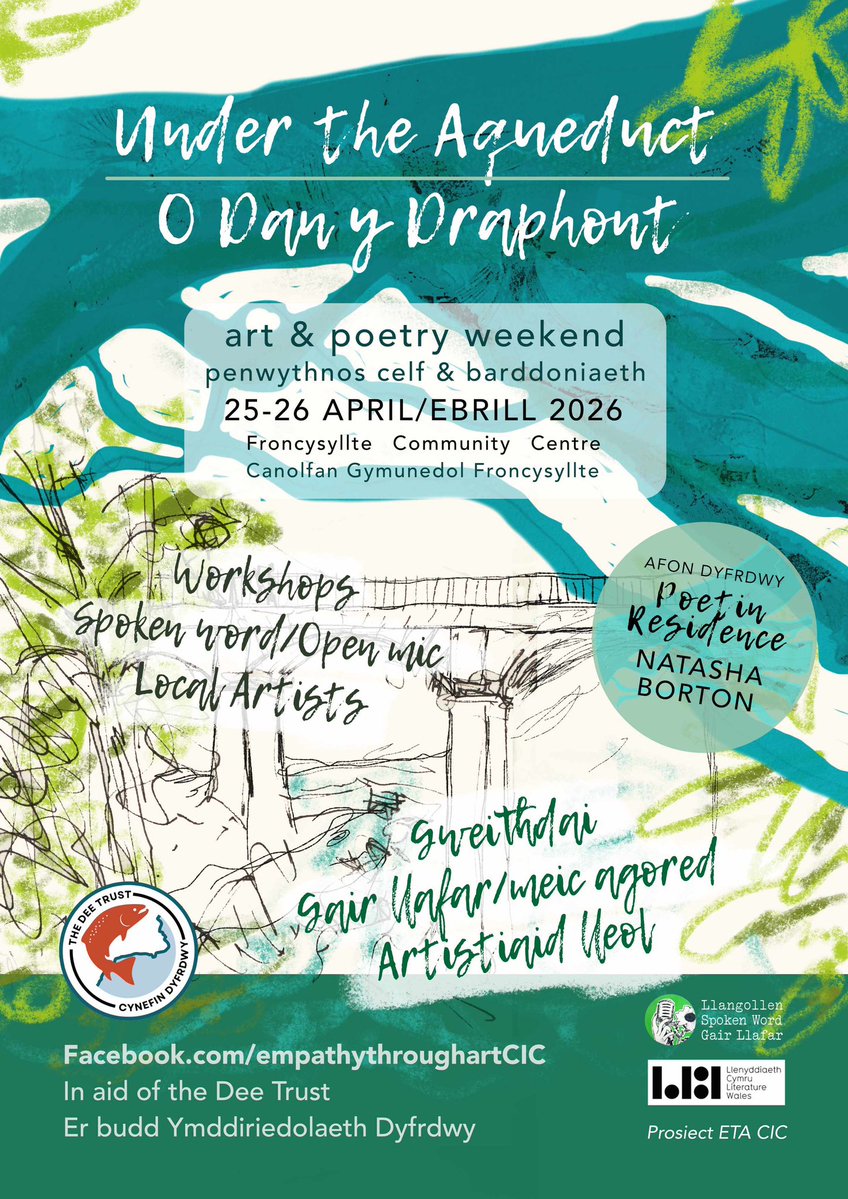 Under the Aqueduct
O Dan y Draphont
art & poetry weekend
penwythnos celf & barddoniaeth
25-26 APRIL/EBRILL 2026
Froncysyllte Community Centre
Canolfan Gymunedol Froncysyllte
Workshops
Spoken word/Open mic
Local Artists
AFON DYFRDWY
Poet in
Residence
NATASHA
BORTON
Gweithdai
Gair llafar/meic agored
Artistiaid lleol
THE DEE TRUST
CYNEFIN DYFRDWY
Facebook.com/empathythroughartCIC
In aid of the Dee Trust
Er budd Ymddiriedolaeth Dyfrdwy
Llangollen
Spoken Word
Gair Llafar
Llenyddiaeth
Cymru
Literature
Wales
Prosiect ETA CIC